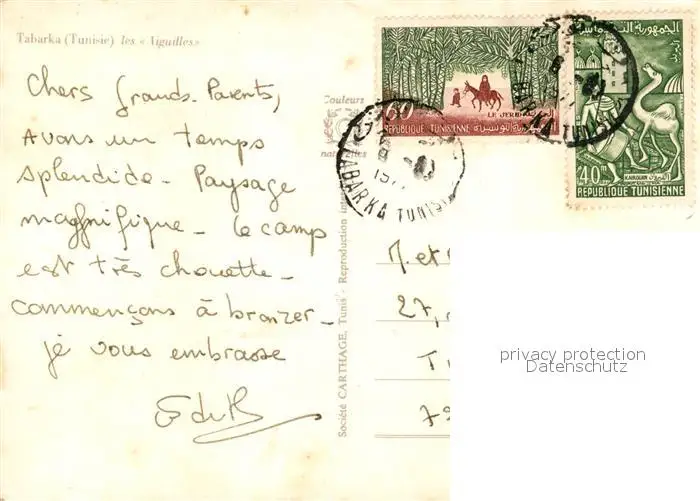 Tabarka (Tunisie) les « Aiguilles »
Chers Grands-Parents,
Avons un temps
splendide. Paysage
magnifique - le camp
est très chouette -
commençons à bronzer -
je vous embrasse
Couleurs
naturelles
Société CARTHAGE, Tunis - Reproduction
60
LE JERID
REPUBLIQUE TUNISIENNE الجمهورية التونسية
TABARKA TUNISIE
الجمهورية التونسية
40m
KAIROUAN القيروان
REPUBLIQUE TUNISIENNE
M. et
27,
T
privacy protection
Datenschutz